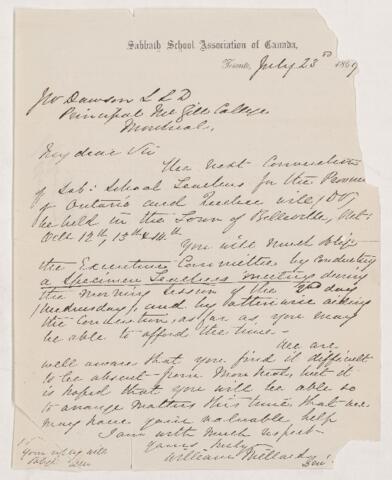 Sabbath School Association of Canada,
Toronto, July 23rd 1869
Dawson L L D
Principal McGill College
Montreal,
My dear Sir
The next Convention
of Sab: School Teachers for the Province
of Ontario and Quebec will (DV)
be held in the Town of Belleville, Ont.
Octr 12th, 13th & 14th
You will much oblige
the Executive Committee by conducting
a Specimen Teachers meeting during
the Morning Session of the 2nd day
(Wednesday), and by otherwise aiding
the Convention, as far as you may
be able to afford the time -
We are
well aware that you find it difficult
to be absent from Montreal, but it
is hoped that you will be able so
to arrange matters this time that we
may have your valuable help
I am with much respect
Yours truly
William Millard
Sec'
Your reply will
oblige